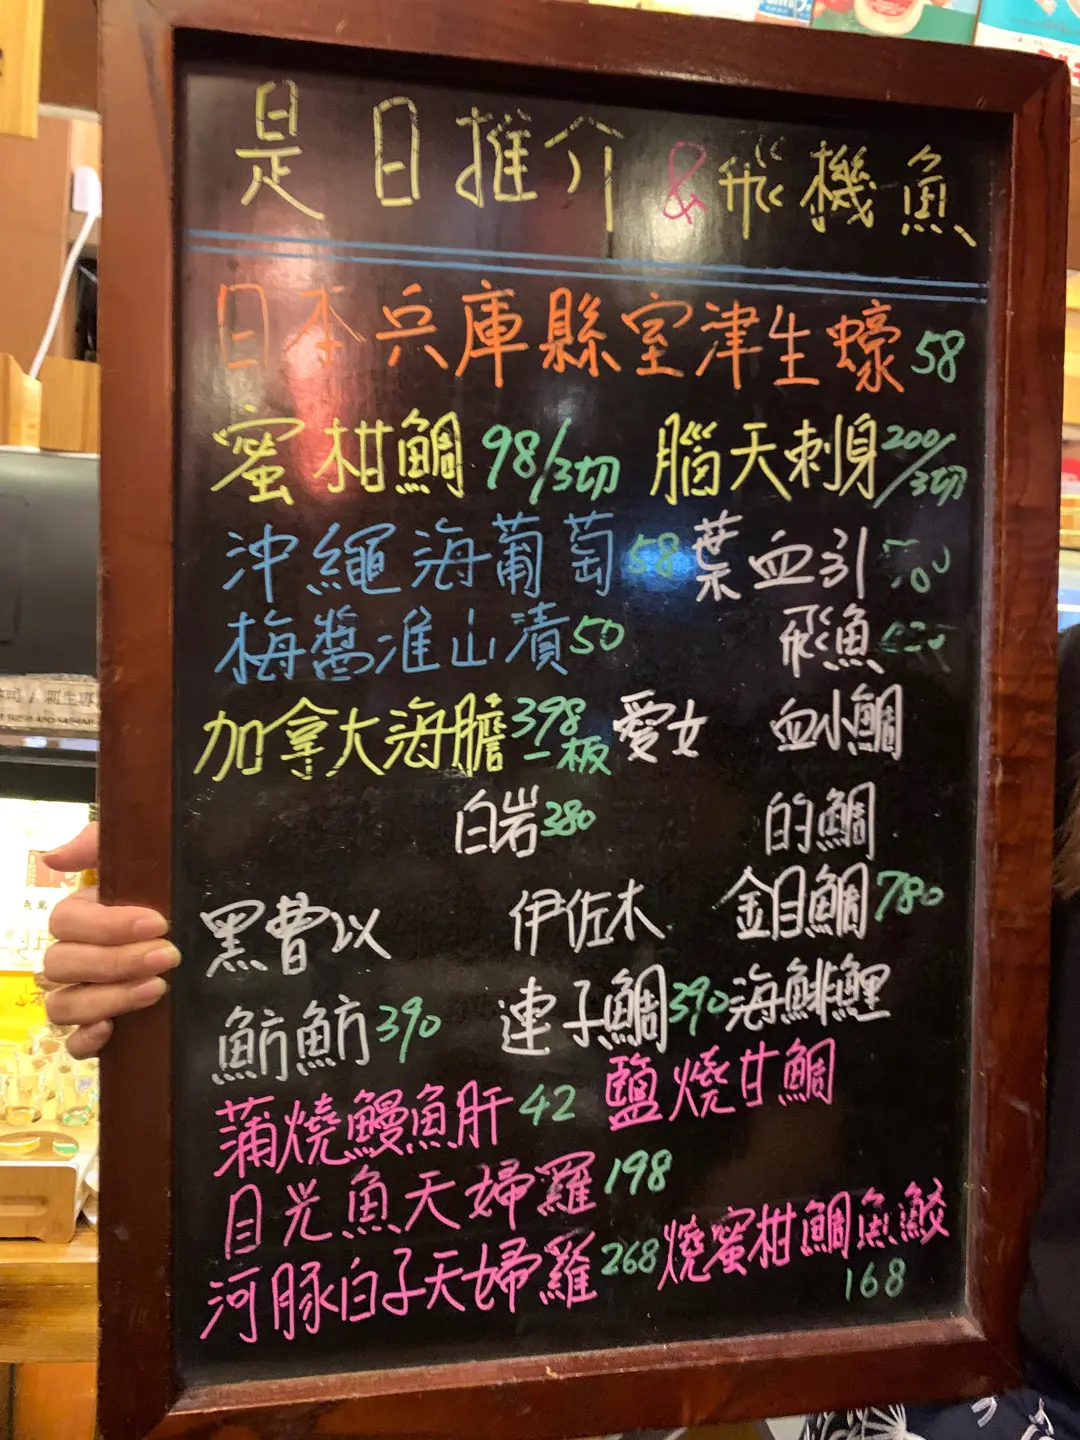 是日推介 & 飛機魚
日本兵庫縣室津生蠔 58
蜜柑鯛 98/3切 腦天刺身 200/3切
沖繩海葡萄 58 葉血引
梅醬准山漬 50 飛魚
加拿大海膽 398 一板 愛女 血小鯛
白岩 380 的鯛
黑曹以 伊佐木 金目鯛 780
魴魴 390 連子鯛 390 海鯡鯉
蒲燒鰻魚肝 42 鹽燒甘鯛
目光魚天婦羅 198
河豚白子天婦羅 268 燒蜜柑鯛魚鮫 168
SUSHI AND SASHIMI